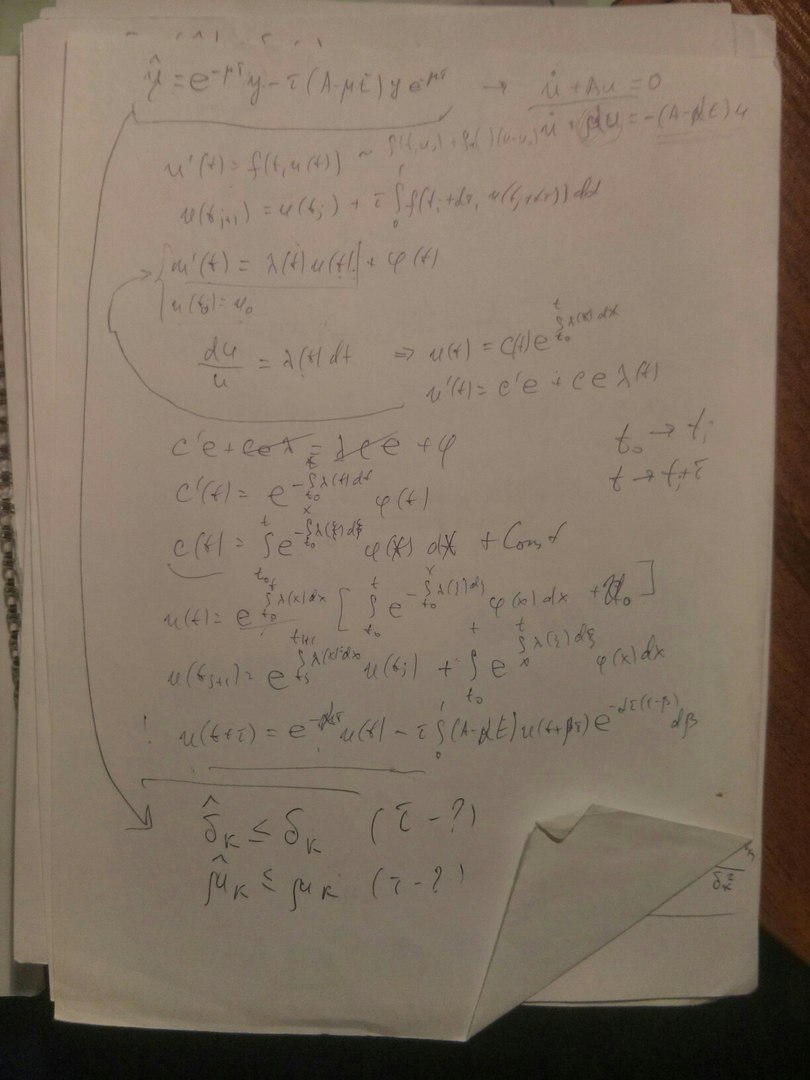 ŷ = e^{-μτ} y - τ(A-μE) y e^{-μτ} → u̇ + Au = 0
u̇ + αu = -(A-αE)u
u'(t) = f(t, u(t)) ~
u(t_{j+1}) = u(t_j) + τ ∫_0^1 f(t_j+ατ, u(t_j+ατ)) dα
{ u'(t) = λ(t) u(t) + φ(t)
u(t_0) = u_0
du/u = λ(t) dt ⇒ u(t) = C(t) e^{∫_{t_0}^t λ(x) dx}
u'(t) = c'e + c e λ(t)
c'e + ceλ = λce + φ
t_0 → t_j
t → t_j+τ
c'(t) = e^{-∫_{t_0}^t λ(t) dt} φ(t)
c(t) = ∫_{t_0}^t e^{-∫_{t_0}^x λ(ξ) dξ} φ(x) dx + Const
u(t) = e^{∫_{t_0}^t λ(x) dx} [ ∫_{t_0}^t e^{-∫_{t_0}^x λ(ξ) dξ} φ(x) dx + u_0 ]
u(t_{j+1}) = e^{∫_{t_j}^{t_{j+1}} λ(x) dx} u(t_j) + ∫_{t_0}^t e^{∫_x^t λ(ξ) dξ} φ(x) dx
! u(t+τ) = e^{-ατ} u(t) - τ ∫_0^1 (A-αE) u(t+βτ) e^{-ατ(1-β)} dβ
δ̂_k ≤ δ_k (τ - ?)
μ̂_k ≤ μ_k (τ - ?)
δ_k^2